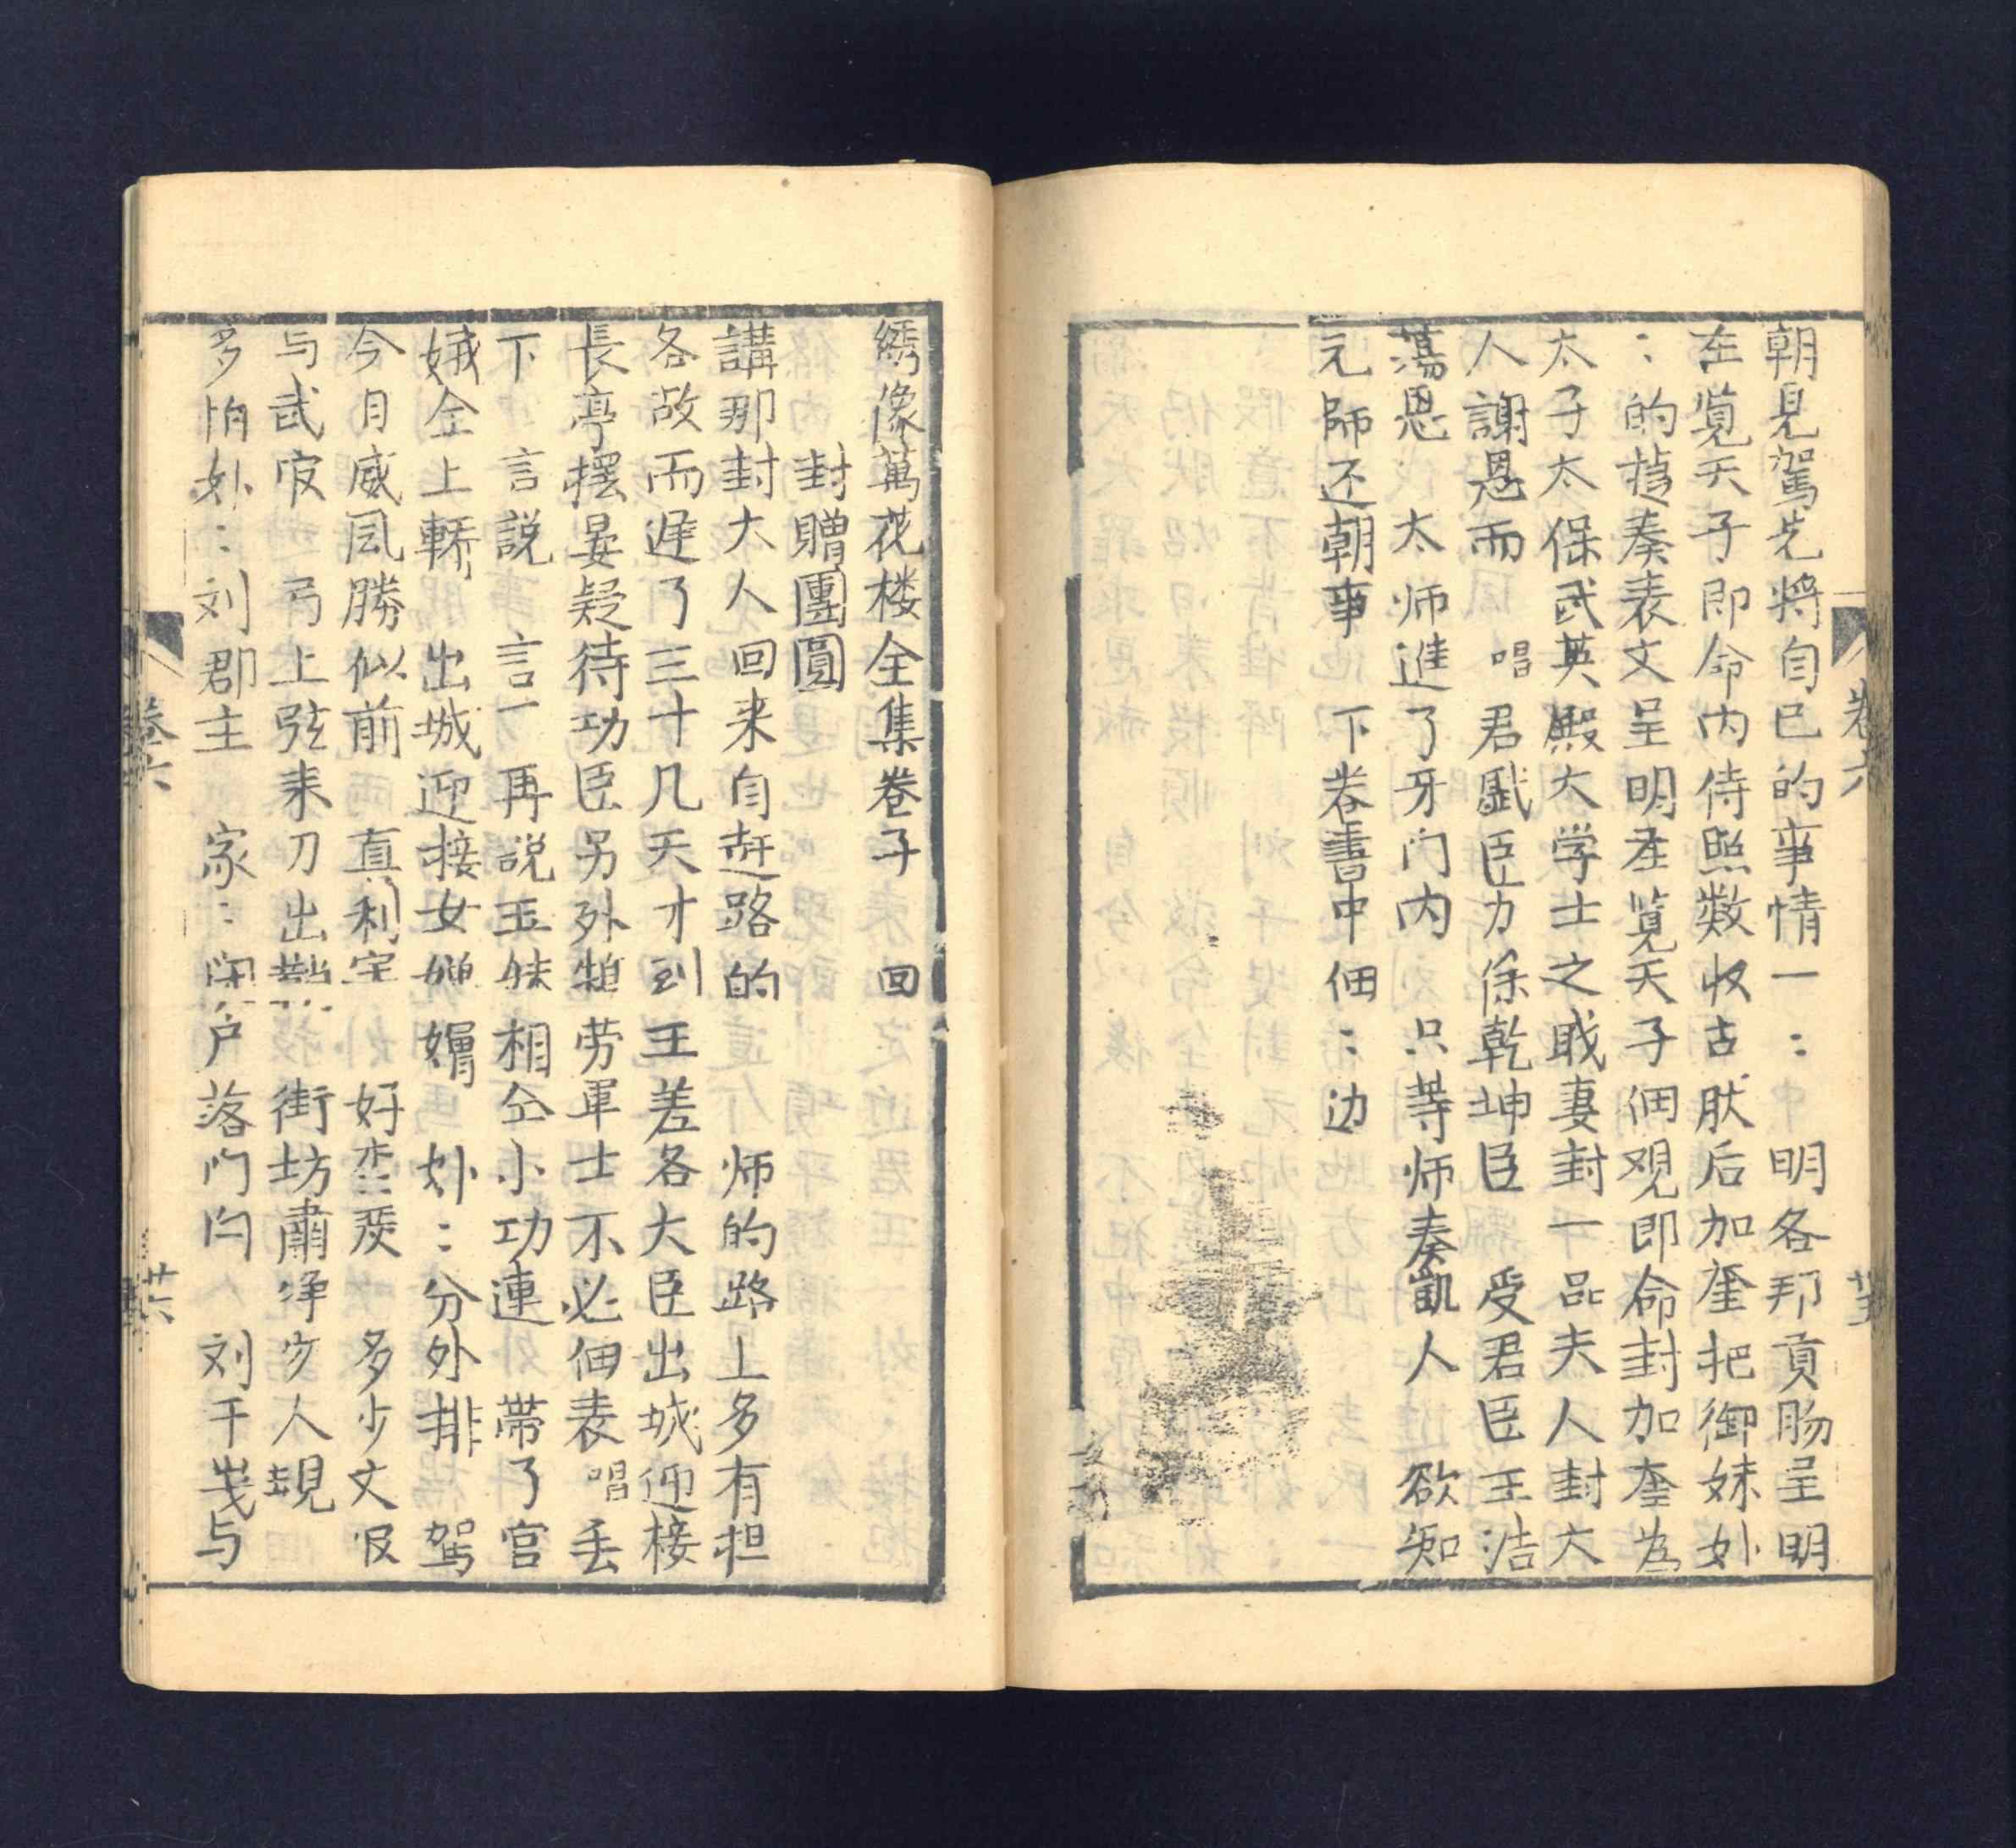 卷六
朝見駕先将自己的事情一：明各邦貢肠呈明
在覧天子即命内侍照数收古肰后加奎把御妹妙
：的表奏表文呈明在覧天子佃观即命封加奎為
太子太保武英殿大学士之戝妻封一品夫人封大
人謝恩而 唱 君臣力徐乾坤臣 受君臣王浩
蕩恩 太师進了牙门内 只等师奏凱人 欲知
元師还朝事 下卷書中佃：边
綉像萬花楼全集卷子 回
封贈團圓
講那封大人回来自赶路的 师的路上多有担
各故而遅了三十几天才到 王差各大臣出城迎接
長亭擺晏疑待功臣另外犒劳軍士不必佃表 唱 丢
下 言説 言一 再説玉妹 相仝小功連 帯了宫
娥仝上轎 出城迎接女 妙：分外排 駕
今日威風勝似前 真利害 好 多少文
与武官 弓上弦来刀出鞘 街坊肅净 人
多怕妙：刘郡主 家：闭户落门闩 刘千 与
卷六